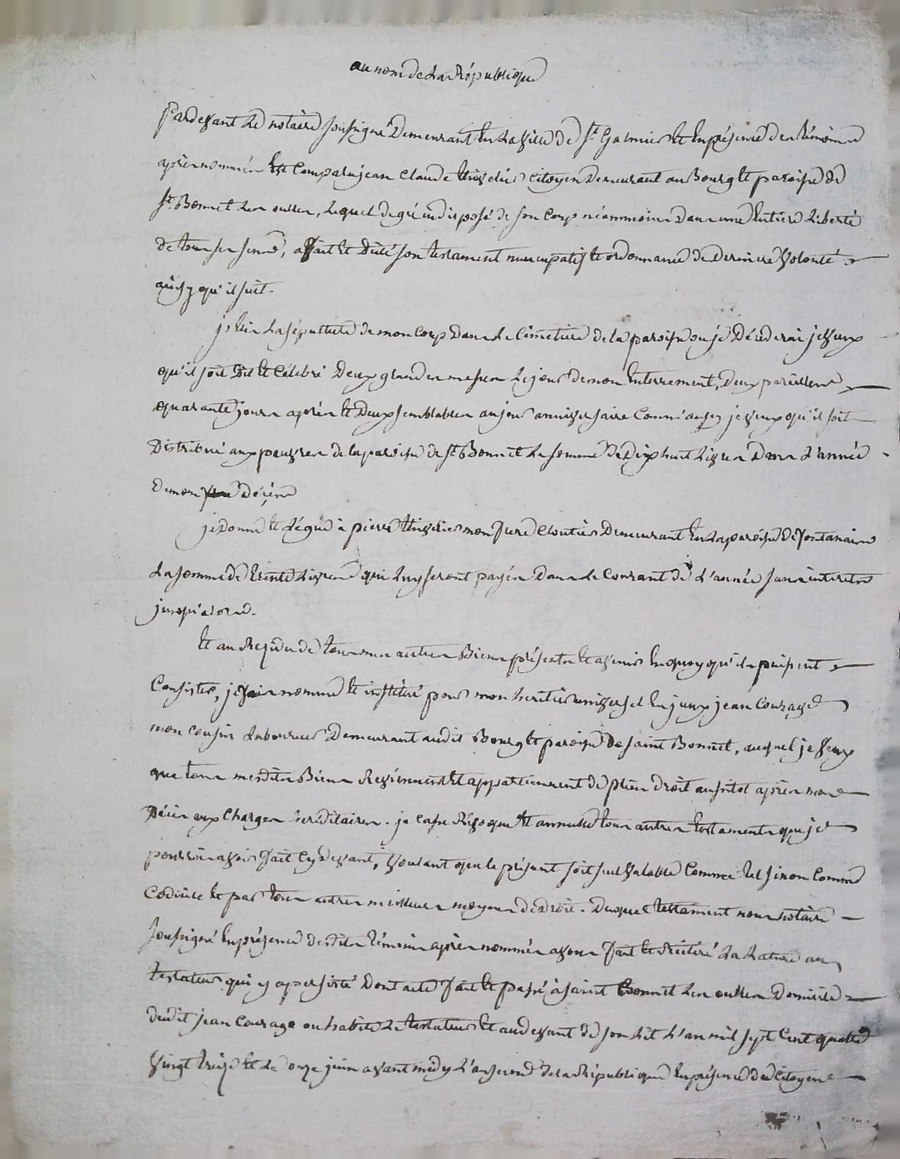 au nom de La République
Pardevant Le notaire soussigné Demeurant En La ville de St Galmier Et En présence des témoins
après nommés Est Comparu jean Claude citoyen Demeurant au Bourg Et paroisse de
St Bonnet Les oulles, Lequel de gré indisposé de son Corps néammoins Dans une Entiere Liberté
de tous ses sens, a fait Et Dicté son testament nuncupatif Et ordonnance de derniere volonté
ainsy qu'il suit.
j'Elis La sépulture de mon Corps Dans Le Cimetiere de la paroisse ou je Décéderai je veux
qu'il soit Dit Et Célébré Deux grandes messes Le jour de mon Enterrement, Deux pareilles
quarante jours après Et Deux semblables au jour anniversaire Comm'aussy je veux qu'il soit
Distribué aux pauvres de la paroisse de St Bonnet La somme de Dix huit Livres Dans L'année
De mon Décès
je Donne Et Légue à pierre mon frere Cloutier Demeurant En La paroisse de fontanais
La somme de trente Livres qui Luy seront payés Dans Le Courant de L'année sans interets
jusqu'alors.
Et au Résidu de tous mes autres Biens présents Et avenir En quoy qu'ils puissent
Consister, je fais nomme Et institue pour mon heritier universel En jceux jean Courage
mon cousin Laboureur Demeurant audit Bourg Et paroisse de saint Bonnet, auquel je veux
que tous mesdits Biens Reviennent Et appartiennent de plein Droit aussitot après mon
Décès aux Charges héréditaires. je Casse Révoque Et annulle tous autres testaments que je
pourrois avoir fait Cy devant, voulant que le présent soit seul valable Comme tel sinon Comme
Codicile Et par tous autres meilleurs moyens de droit. Duquel testament nous notaire
soussigné En présence desdits témoins après nommés avons fait Et Réitéré La Lecture au
testateur qui y a persisté Dont acte fait Et passé à saint Bonnet Les oulles Domicile
dudit jean Courage ou habite Le testateur Et au devant de son Lit L'an mil sept Cent quatre
vingt treize Et Le onze juin avant midy L'an second de la République En présence des Citoyens